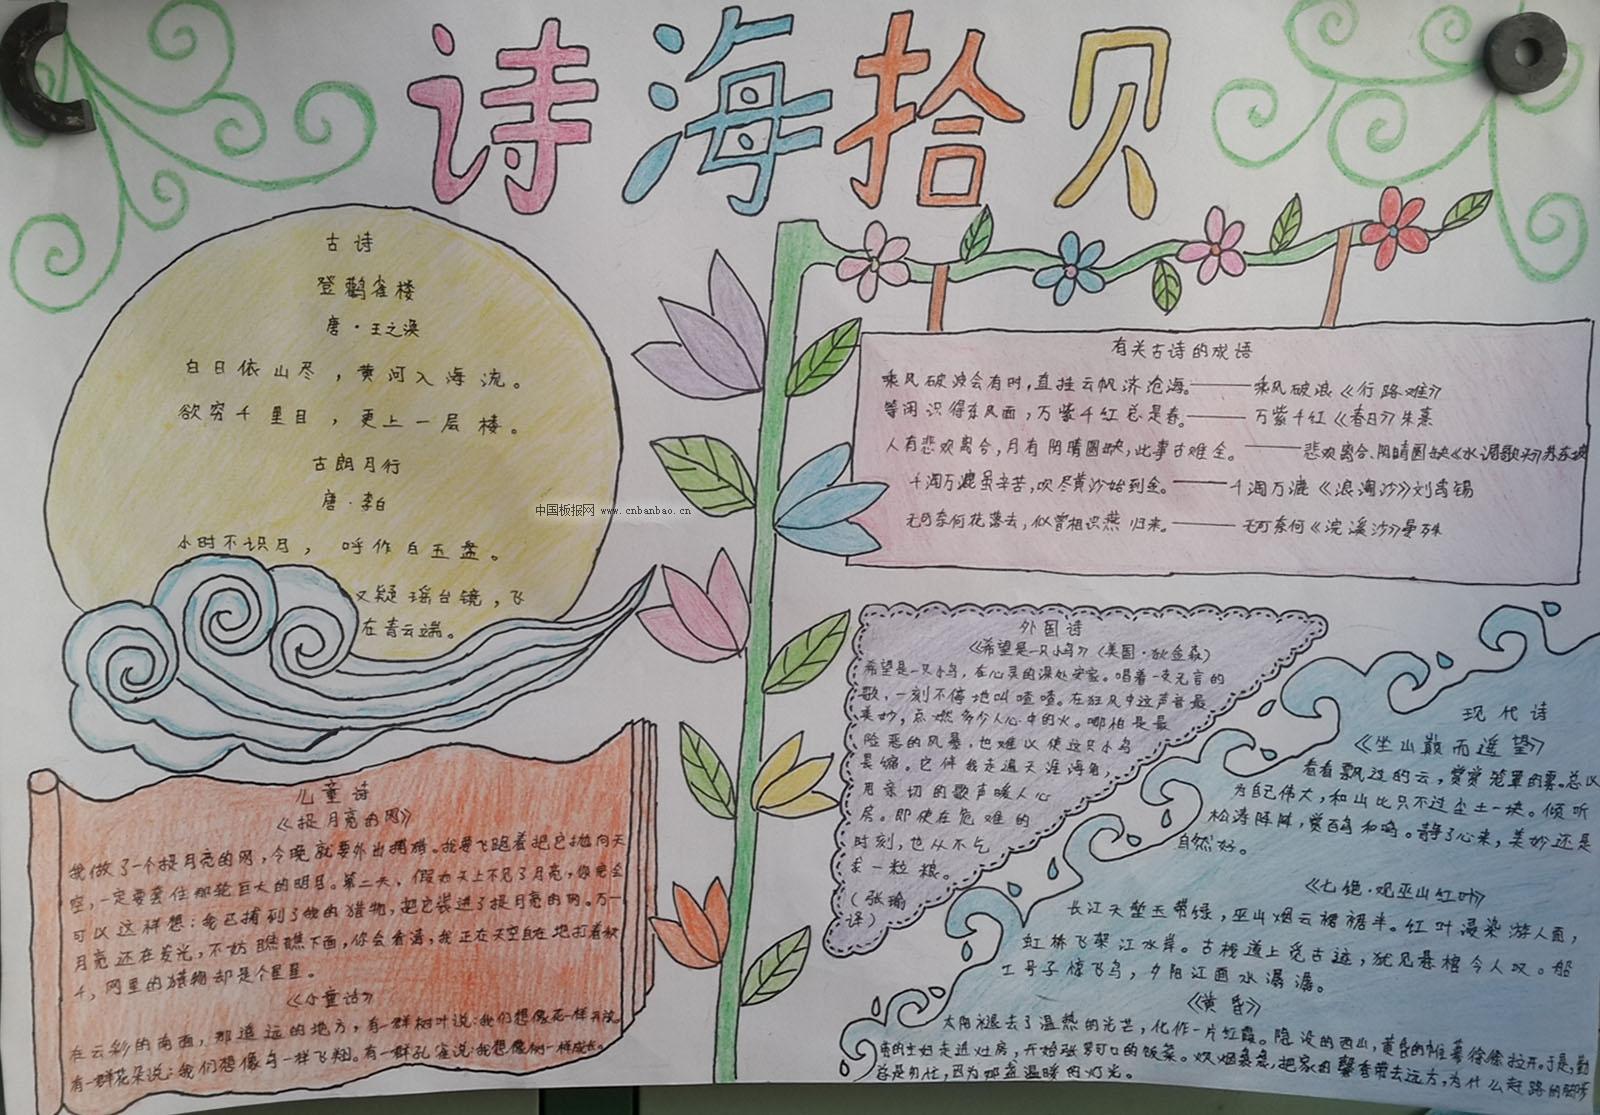 诗海拾贝
古诗
登鹳雀楼
唐·王之涣
白日依山尽，黄河入海流。
欲穷千里目，更上一层楼。
古朗月行
唐·李白
小时不识月，呼作白玉盘。
又疑瑶台镜，飞
在青云端。
中国板报网 www.cnbanbao.cn
有关古诗的成语
乘风破浪会有时，直挂云帆济沧海。——乘风破浪《行路难》
等闲识得东风面，万紫千红总是春。——万紫千红《春日》朱熹
人有悲欢离合，月有阴晴圆缺，此事古难全。——悲欢离合、阴晴圆缺《水调歌头》苏东坡
千淘万漉虽辛苦，吹尽黄沙始到金。——千淘万漉《浪淘沙》刘禹锡
无可奈何花落去，似曾相识燕归来。——无可奈何《浣溪沙》晏殊
外国诗
《希望是一只小鸟》（美国·狄金森）
希望是一只小鸟，在心灵的深处安家。唱着一支无言的
歌，一刻不停地叫喳喳。在狂风中这声音最
美妙，点燃多少人心中的火。哪怕是最
险恶的风暴，也难以使这只小鸟
畏缩。它伴我走遍天涯海角，
用亲切的歌声暖人心
房。即使在危难的
时刻，也从不乞
求一粒粮。
（张瑜
译）
儿童诗
《捉月亮的网》
我做了一个捉月亮的网，今晚就要外出捕猎。我要飞跑着把它抛向天
空，一定要套住那轮巨大的明月。第二天，假如天上不见了月亮，你完全
可以这样想：我已捕到了我的猎物，把它装进了捉月亮的网。万一
月亮还在发光，不妨瞧瞧下面，你会看清，我正在天空自在地打着秋
千，网里的猎物却是个星星。
《小童话》
在云彩的南面，那遥远的地方，有一群树叶说：我们想像花一样开放。
有一群花朵说：我们想像鸟一样飞翔。有一群孔雀说：我想像树一样成长。
现代诗
《坐山巅而遥望》
看看飘过的云，赏赏笼罩的雾。总以
为自己伟大，和山比只不过尘土一块。倾听
松涛阵阵，赏百鸟和鸣。静了心来，美妙还是
自然好。
《七绝·观巫山红叶》
长江天堑玉带绿，巫山烟云裙裾半。红叶浸染游人面，
虹桥飞架江水岸。古栈道上觅古迹，犹见悬棺令人叹。船
工号子惊飞鸟，夕阳江画水潺潺。
《黄昏》
太阳褪去了温热的光芒，化作一片红霞。隐没的西山，黄昏的帷幕徐徐拉开。于是，勤
的主妇走进灶房，开始张罗可口的饭菜。炊烟袅袅，把家的馨香带去远方，为什么赶路的脚步
总是匆忙，因为那盏温暖的灯光。